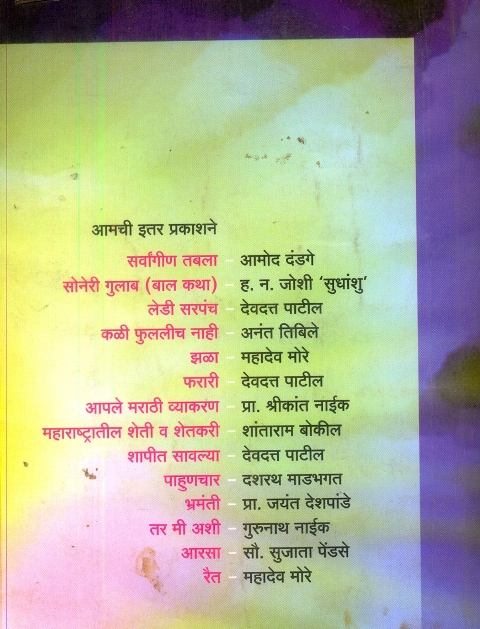 आमची इतर प्रकाशने
सर्वांगीण तबला – आमोद दंडगे
सोनेरी गुलाब (बाल कथा) – ह. न. जोशी ‘सुधांशु’
लेडी सरपंच – देवदत्त पाटील
कळी फुललीच नाही – अनंत तिबिले
झळा – महादेव मोरे
फरारी – देवदत्त पाटील
आपले मराठी व्याकरण – प्रा. श्रीकांत नाईक
महाराष्ट्रातील शेती व शेतकरी – शांताराम बोकील
शापीत सावल्या – देवदत्त पाटील
पाहुणचार – दशरथ माडभगत
भ्रमंती – प्रा. जयंत देशपांडे
तर मी अशी – गुरुनाथ नाईक
आरसा – सौ. सुजाता पेंडसे
रैत – महादेव मोरे